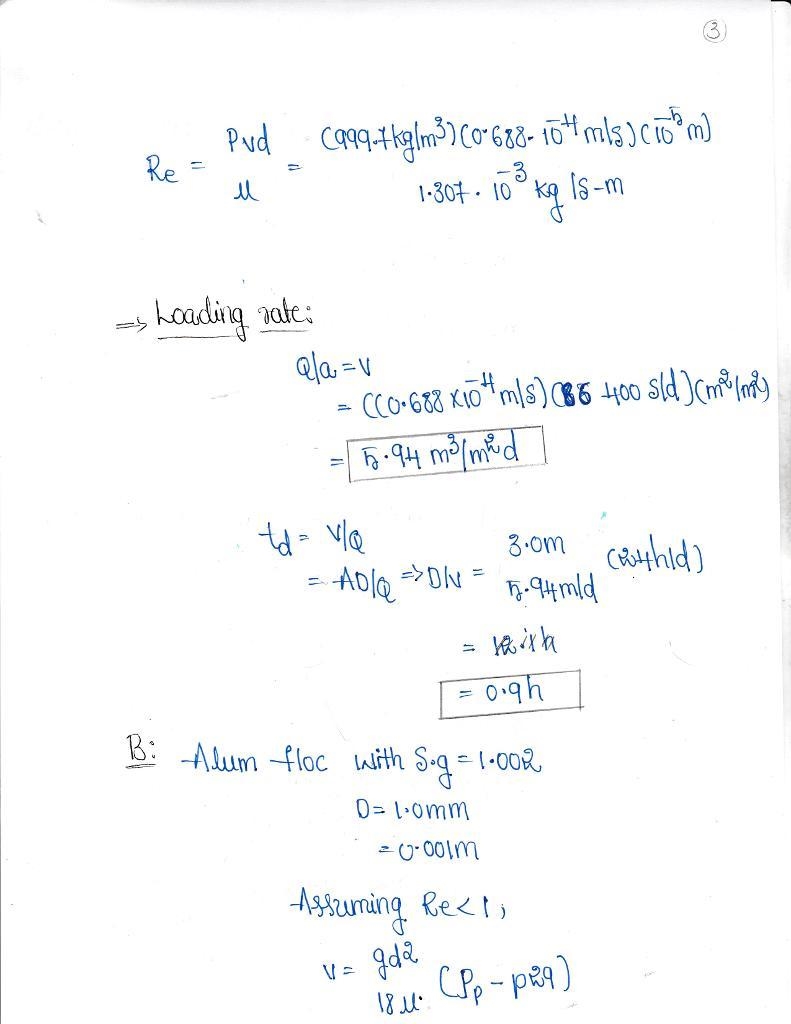 3
Re = Pvd / μ = (999.7kg/m³)(0.688 · 10⁻⁴ m/s)(10⁻⁵ m) / 1.307 · 10⁻³ kg/s-m
⇒ Loading rate:
Q/a = v
= ((0.688 x10⁻⁴ m/s)(86 400 s/d)(m²/m²)
= 5.94 m³/m²d
td = V/Q
= AD/Q => D/V = 3.0m / 5.94m/d (24h/d)
= 0.9h
B: Alum floc with S.g = 1.002
D = 1.0mm
= 0.001m
Assuming Re < 1,
v = gd2 / 18μ. (Pp - p29)